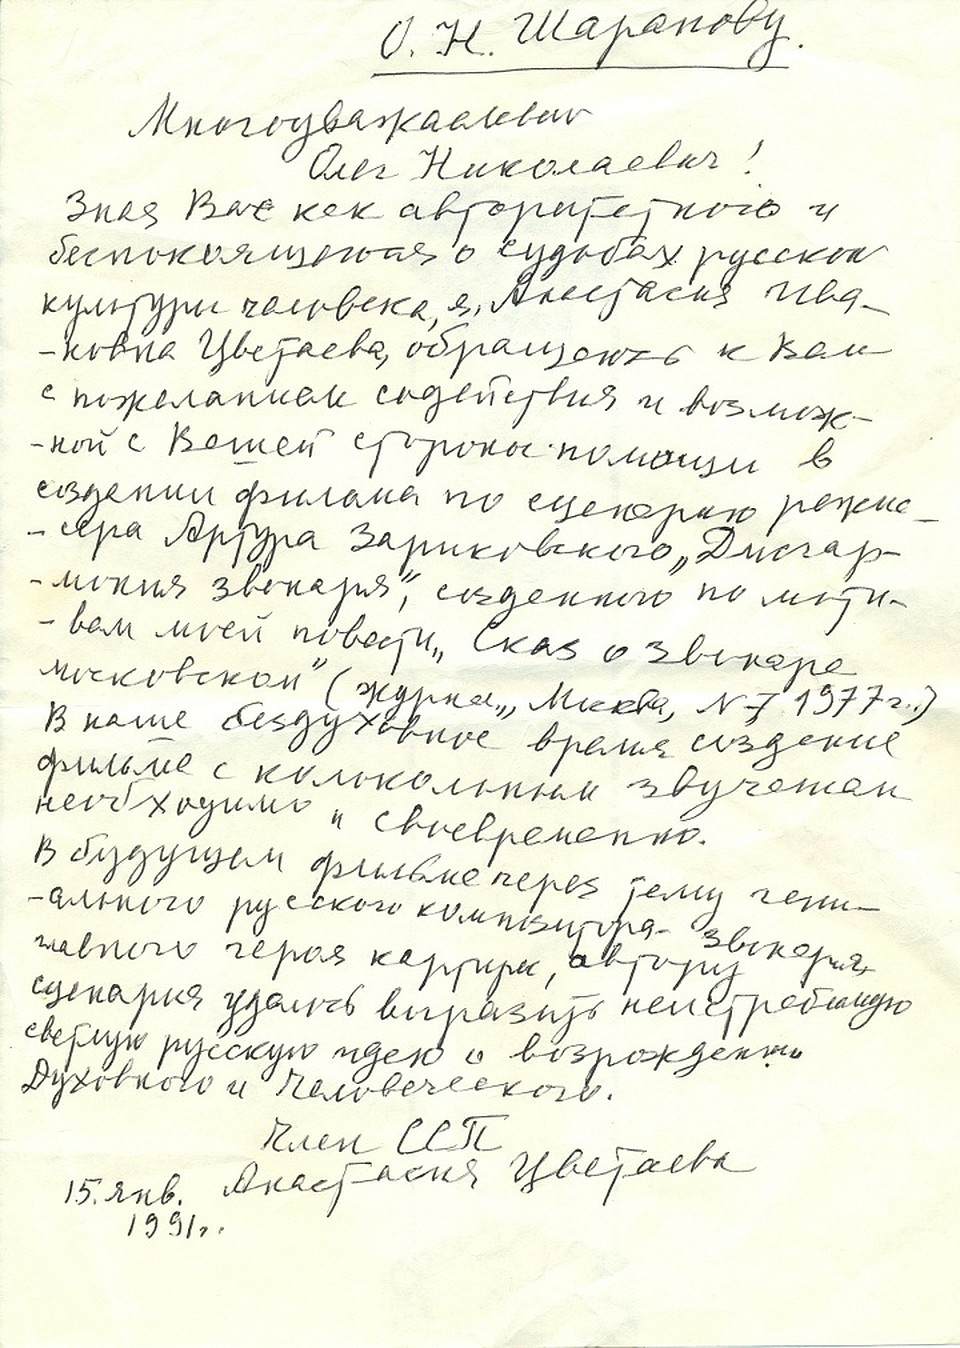 О. Н. Шарапову.
Многоуважаемый
Олег Николаевич!
Зная Вас как авторитетного и
беспокоящегося о судьбах русской
культуры человека, я, Анастасия Ива-
-новна Цветаева, обращаюсь к Вам
с пожеланием содействия и возмож-
-ной с Вашей стороны помощи в
создании фильма по сценарию режис-
-сера Артура Зариковского „Дисгар-
-мония звонаря", созданного по моти-
-вам моей повести „Сказ о звонаре
московском" (журнал „Москва, N 7 1977 г.)
В наше бездуховное время создание
фильма с колокольным звучанием
необходимо и своевременно.
В будущем фильме через тему гени-
-ального русского композитора- звонаря
главного героя картины, автору
сценария удалось выразить неистребимую
светлую русскую идею о возрождении
Духовного и Человеческого.
Член ССП
Анастасия Цветаева
15. янв.
1991г.